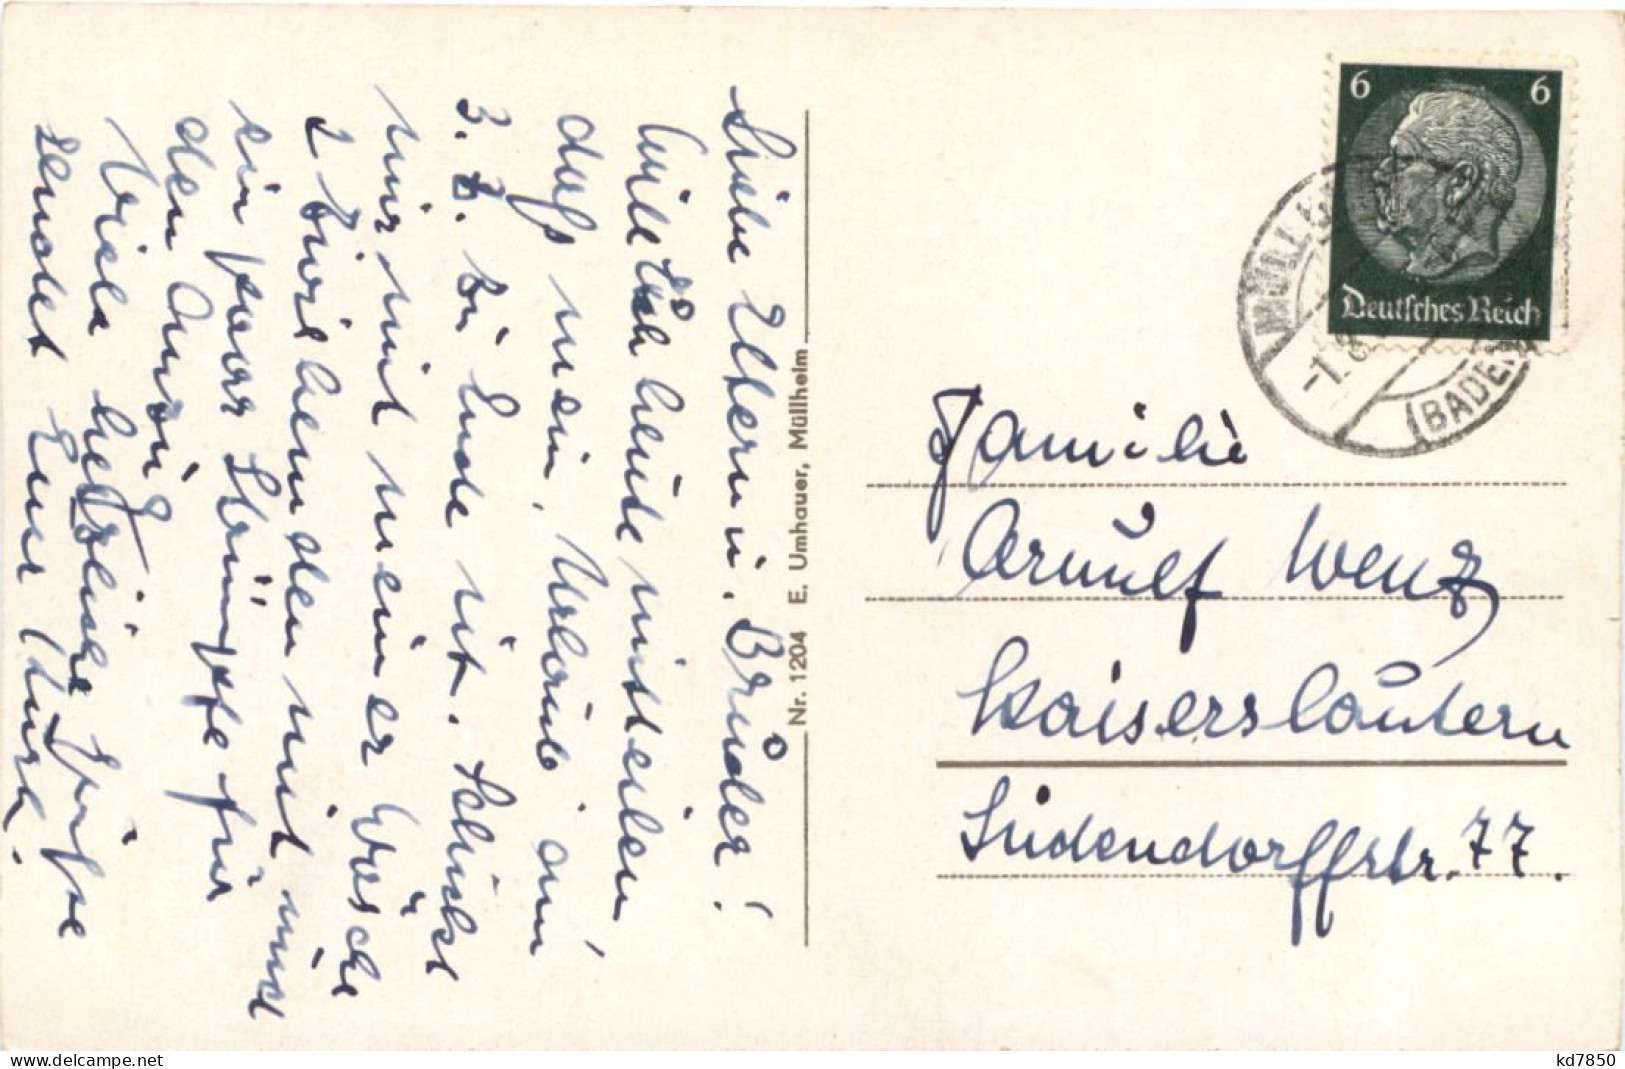 Liebe Eltern u. Brüder!
Will Euch heute mitteilen
daß mein Urlaub am
3. 8. zu Ende ist. Schickt
mir mit meiner Wäsche
2 Zivilhemden mit und
ein paar Strümpfe für
den Anzug
Viele herzliche Grüße
sendet Euer
Nr. 1204 E. Umhauer, Müllheim
6 6
Deutsches Reich
MÜLLHEIM
(BADEN)
Familie
Arnulf Wenz
Kaiserslautern
Ludendorffstr. 77.
kd7850
delcampe.net